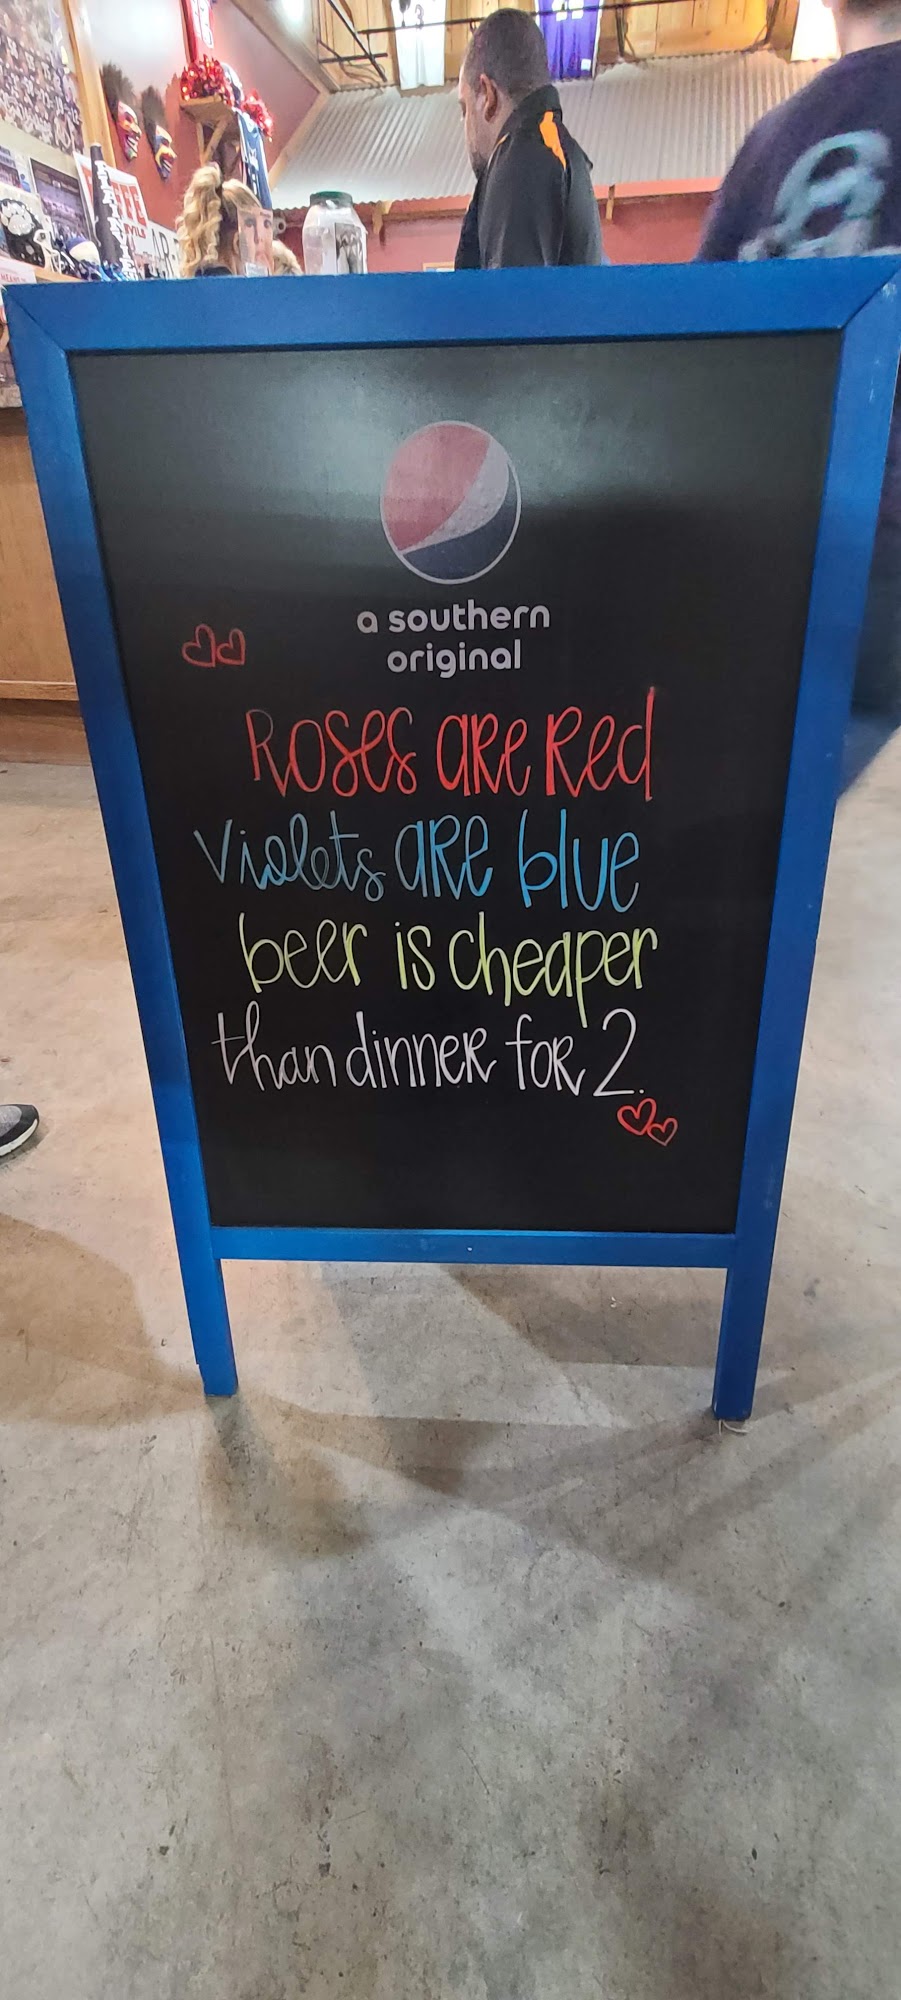 a southern
original
Roses are Red
Violets are blue
beer is cheaper
than dinner for 2.